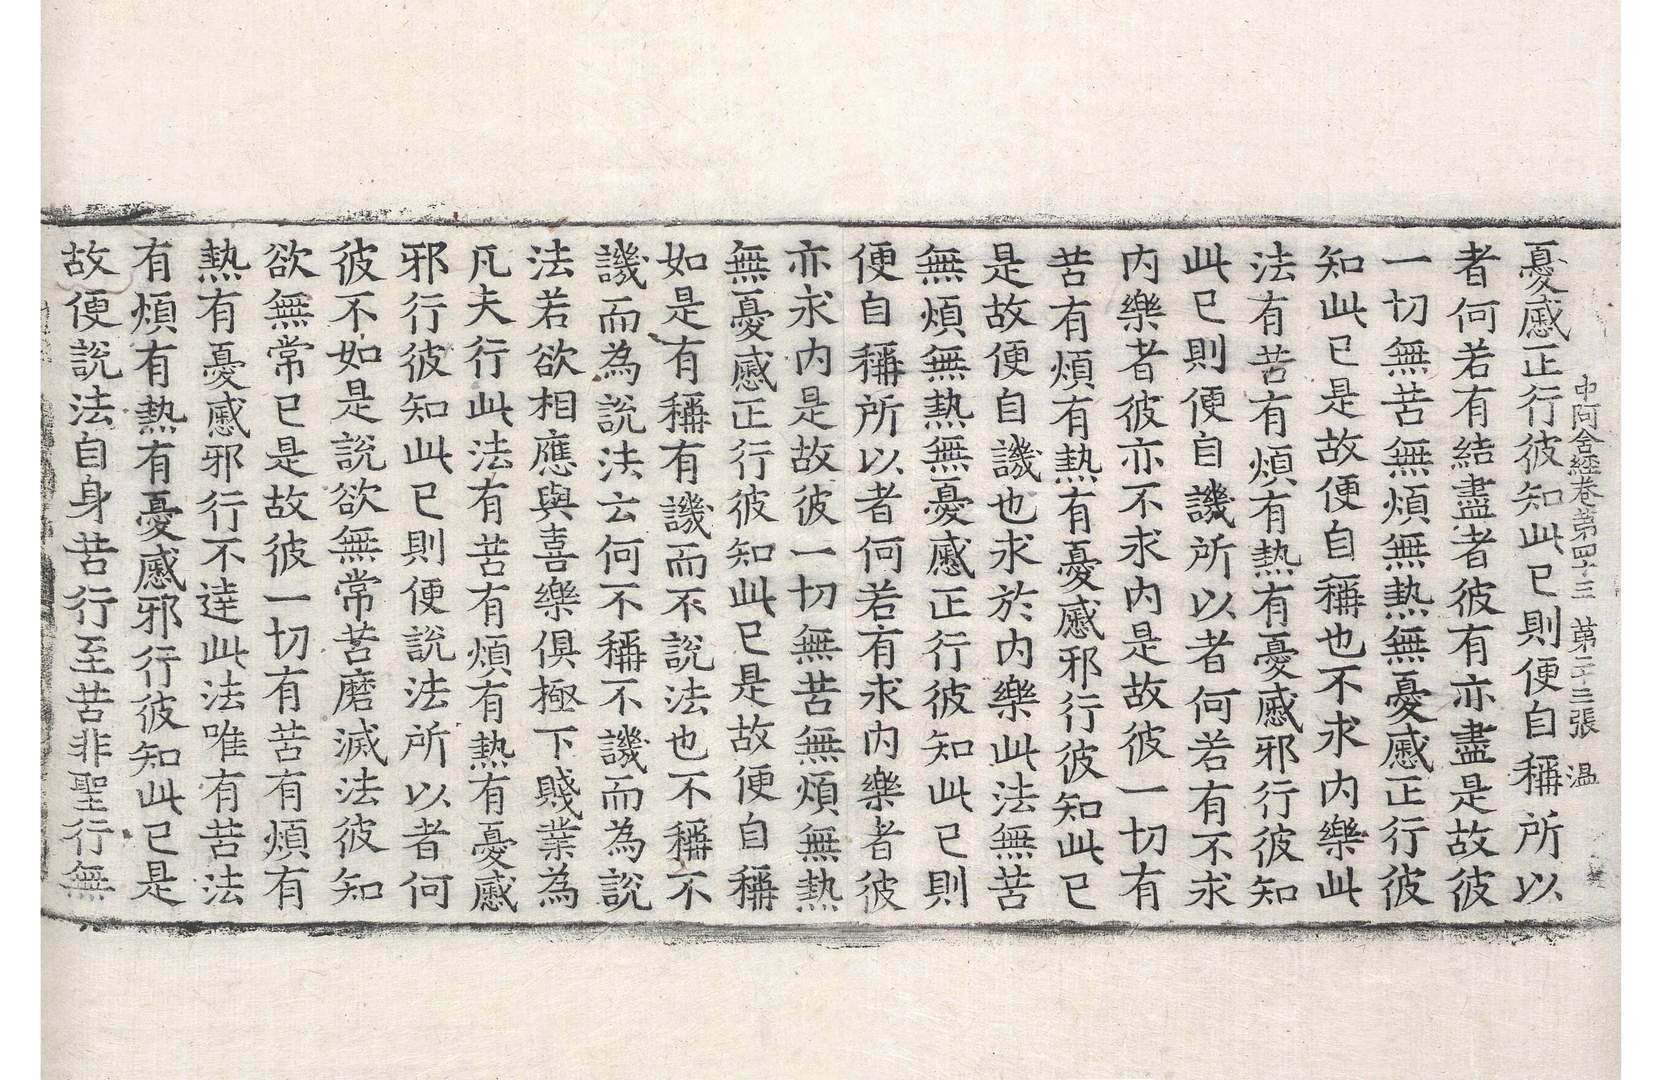 中阿含經卷第四十三 第二十三張 溫
憂慼正行彼知此已則便自稱所以
者何若有結盡者彼有亦盡是故彼
一切無苦無煩無熱無憂慼正行彼
知此已是故便自稱也不求內樂此
法有苦有煩有熱有憂慼邪行彼知
此已則便自譏所以者何若有不求
內樂者彼亦不求內是故彼一切有
苦有煩有熱有憂慼邪行彼知此已
是故便自譏也求於內樂此法無苦
無煩無熱無憂慼正行彼知此已則
便自稱所以者何若有求內樂者彼
亦求內是故彼一切無苦無煩無熱
無憂慼正行彼知此已是故便自稱
如是有稱有譏而不說法也不稱不
譏而為說法云何不稱不譏而為說
法若欲相應與喜樂俱極下賤業為
凡夫行此法有苦有煩有熱有憂慼
邪行彼知此已則便說法所以者何
彼不如是說欲無常苦磨滅法彼知
欲無常已是故彼一切有苦有煩有
熱有憂慼邪行不達此法唯有苦法
有煩有熱有憂慼邪行彼知此已是
故便說法自身苦行至苦非聖行無